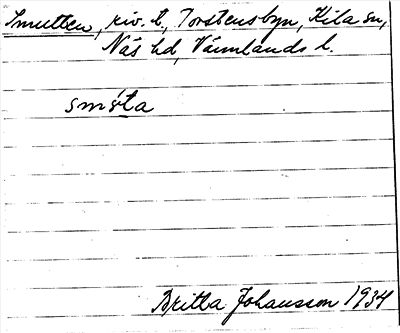 Smutten, riv. t., Torstensbyn, Kila sn,
Näs hd, Värmlands l.
smɤ́ta
Britta Johansson 1934